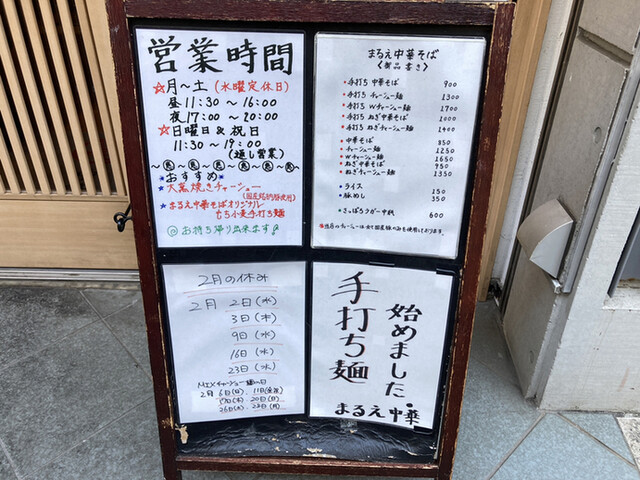 営業時間
☆月〜土(水曜定休日)
昼11:30〜16:00
夜17:00〜20:00
☆日曜日&祝日
11:30〜19:00
(通し営業)
★おすすめ★
★大窯焼きチャーシュー
★まるえ中華そばオリジナル
もち小麦手打ち麺
◎お持ち帰り出来ます
まるえ中華そば
〈御品書き〉
・手打ち中華そば 900
・手打ちチャーシュー麺 1300
・手打ちWチャーシュー麺 1700
・手打ちねぎ中華そば 1000
・手打ちねぎチャーシュー麺 1400
・中華そば 850
・チャーシュー麺 1250
・Wチャーシュー麺 1650
・ねぎ中華そば 950
・ねぎチャーシュー麺 1350
・ライス 150
・豚めし 350
・さっぽろラガー中瓶 600
2月の休み
2月 2日(水)
3日(木)
9日(水)
16日(水)
23日(水)
MIXチャーシュー麺の日
2月 6日(日)、11日(金祝)
20日(日)
始めました。
手打ち麺
まるえ中華